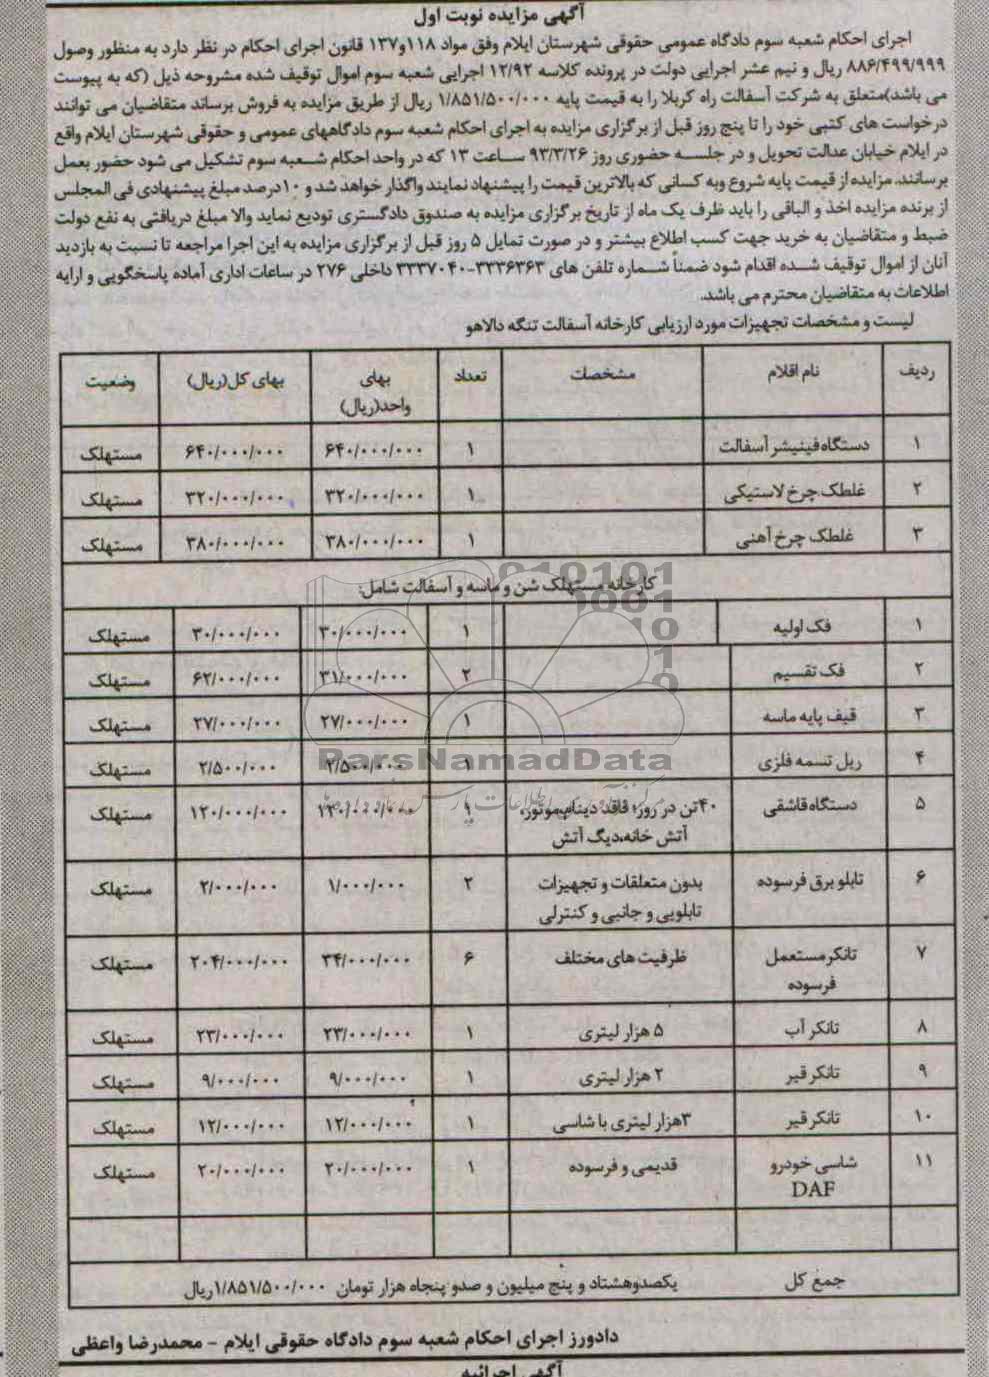 آگهی مزایده نوبت اول
اجرای احکام شعبه سوم دادگاه عمومی حقوقی شهرستان ایلام وفق مواد ۱۱۸و۱۳۷ قانون اجرای احکام در نظر دارد به منظور وصول
۸۸۶/۴۹۹/۹۹۹ ریال و نیم عشر اجرایی دولت در پرونده کلاسه ۱۲/۹۲ اجرایی شعبه سوم اموال توقیف شده مشروحه ذیل (که به پیوست
می باشد)متعلق به شرکت آسفالت راه کربلا را به قیمت پایه ۱/۸۵۱/۵۰۰/۰۰۰ ریال از طریق مزایده به فروش برساند متقاضیان می توانند
درخواست های کتبی خود را تا پنج روز قبل از برگزاری مزایده به اجرای احکام شعبه سوم دادگاههای عمومی و حقوقی شهرستان ایلام واقع
در ایلام خیابان عدالت تحویل و در جلسه حضوری روز ۹۳/۳/۲۶ ساعت ۱۳ که در واحد احکام شعبه سوم تشکیل می شود حضور بعمل
برسانند. مزایده از قیمت پایه شروع وبه کسانی که بالاترین قیمت را پیشنهاد نمایند واگذار خواهد شد و ۱۰درصد مبلغ پیشنهادی فی المجلس
از برنده مزایده اخذ و الباقی را باید ظرف یک ماه از تاریخ برگزاری مزایده به صندوق دادگستری تودیع نماید والا مبلغ دریافتی به نفع دولت
ضبط و متقاضیان به خرید جهت کسب اطلاع بیشتر و در صورت تمایل ۵ روز قبل از برگزاری مزایده به این اجرا مراجعه تا نسبت به بازدید
آنان از اموال توقیف شده اقدام شود ضمناً شماره تلفن های ۳۳۳۶۳۶۳-۳۳۳۷۰۴۰ داخلی ۲۷۶ در ساعات اداری آماده پاسخگویی و ارایه
اطلاعات به متقاضیان محترم می باشد.
لیست و مشخصات تجهیزات مورد ارزیابی کارخانه آسفالت تنگه دالاهو
ردیف نام اقلام مشخصات تعداد بهای واحد(ریال) بهای کل(ریال) وضعیت
۱ دستگاه فینیشر آسفالت ۱ ۶۴۰/۰۰۰/۰۰۰ ۶۴۰/۰۰۰/۰۰۰ مستهلک
۲ غلطک چرخ لاستیکی ۱ ۳۲۰/۰۰۰/۰۰۰ ۳۲۰/۰۰۰/۰۰۰ مستهلک
۳ غلطک چرخ آهنی ۱ ۳۸۰/۰۰۰/۰۰۰ ۳۸۰/۰۰۰/۰۰۰ مستهلک
کارخانه مستهلک شن و ماسه و آسفالت شامل:
۱ فک اولیه ۱ ۳۰/۰۰۰/۰۰۰ ۳۰/۰۰۰/۰۰۰ مستهلک
۲ فک تقسیم ۲ ۳۱/۰۰۰/۰۰۰ ۶۲/۰۰۰/۰۰۰ مستهلک
۳ قیف پایه ماسه ۱ ۲۷/۰۰۰/۰۰۰ ۲۷/۰۰۰/۰۰۰ مستهلک
ParsNamadData
۴ ریل تسمه فلزی ۱ ۲/۵۰۰/۰۰۰ ۲/۵۰۰/۰۰۰ مستهلک
۵ دستگاه قاشقی ۴۰تن در روز؛ فاقد موتور، ۱ ۱۲۰/۰۰۰/۰۰۰ ۱۲۰/۰۰۰/۰۰۰ مستهلک
آتش خانه،دیگ آتش
۶ تابلو برق فرسوده بدون متعلقات و تجهیزات ۲ ۱/۰۰۰/۰۰۰ ۲/۰۰۰/۰۰۰ مستهلک
تابلویی و جانبی و کنترلی
۷ تانکر مستعمل ظرفیت های مختلف ۶ ۳۴/۰۰۰/۰۰۰ ۲۰۴/۰۰۰/۰۰۰ مستهلک
فرسوده
۸ تانکر آب ۵ هزار لیتری ۱ ۲۳/۰۰۰/۰۰۰ ۲۳/۰۰۰/۰۰۰ مستهلک
۹ تانکر قیر ۲ هزار لیتری ۱ ۹/۰۰۰/۰۰۰ ۹/۰۰۰/۰۰۰ مستهلک
۱۰ تانکر قیر ۳هزار لیتری با شاسی ۱ ۱۲/۰۰۰/۰۰۰ ۱۲/۰۰۰/۰۰۰ مستهلک
۱۱ شاسی خودرو قدیمی و فرسوده ۱ ۲۰/۰۰۰/۰۰۰ ۲۰/۰۰۰/۰۰۰ مستهلک
DAF
جمع کل یکصدوهشتاد و پنج میلیون و صدو پنجاه هزار تومان ۱/۸۵۱/۵۰۰/۰۰۰ریال
دادورز اجرای احکام شعبه سوم دادگاه حقوقی ایلام - محمدرضا واعظی
آگهی اجرائیه